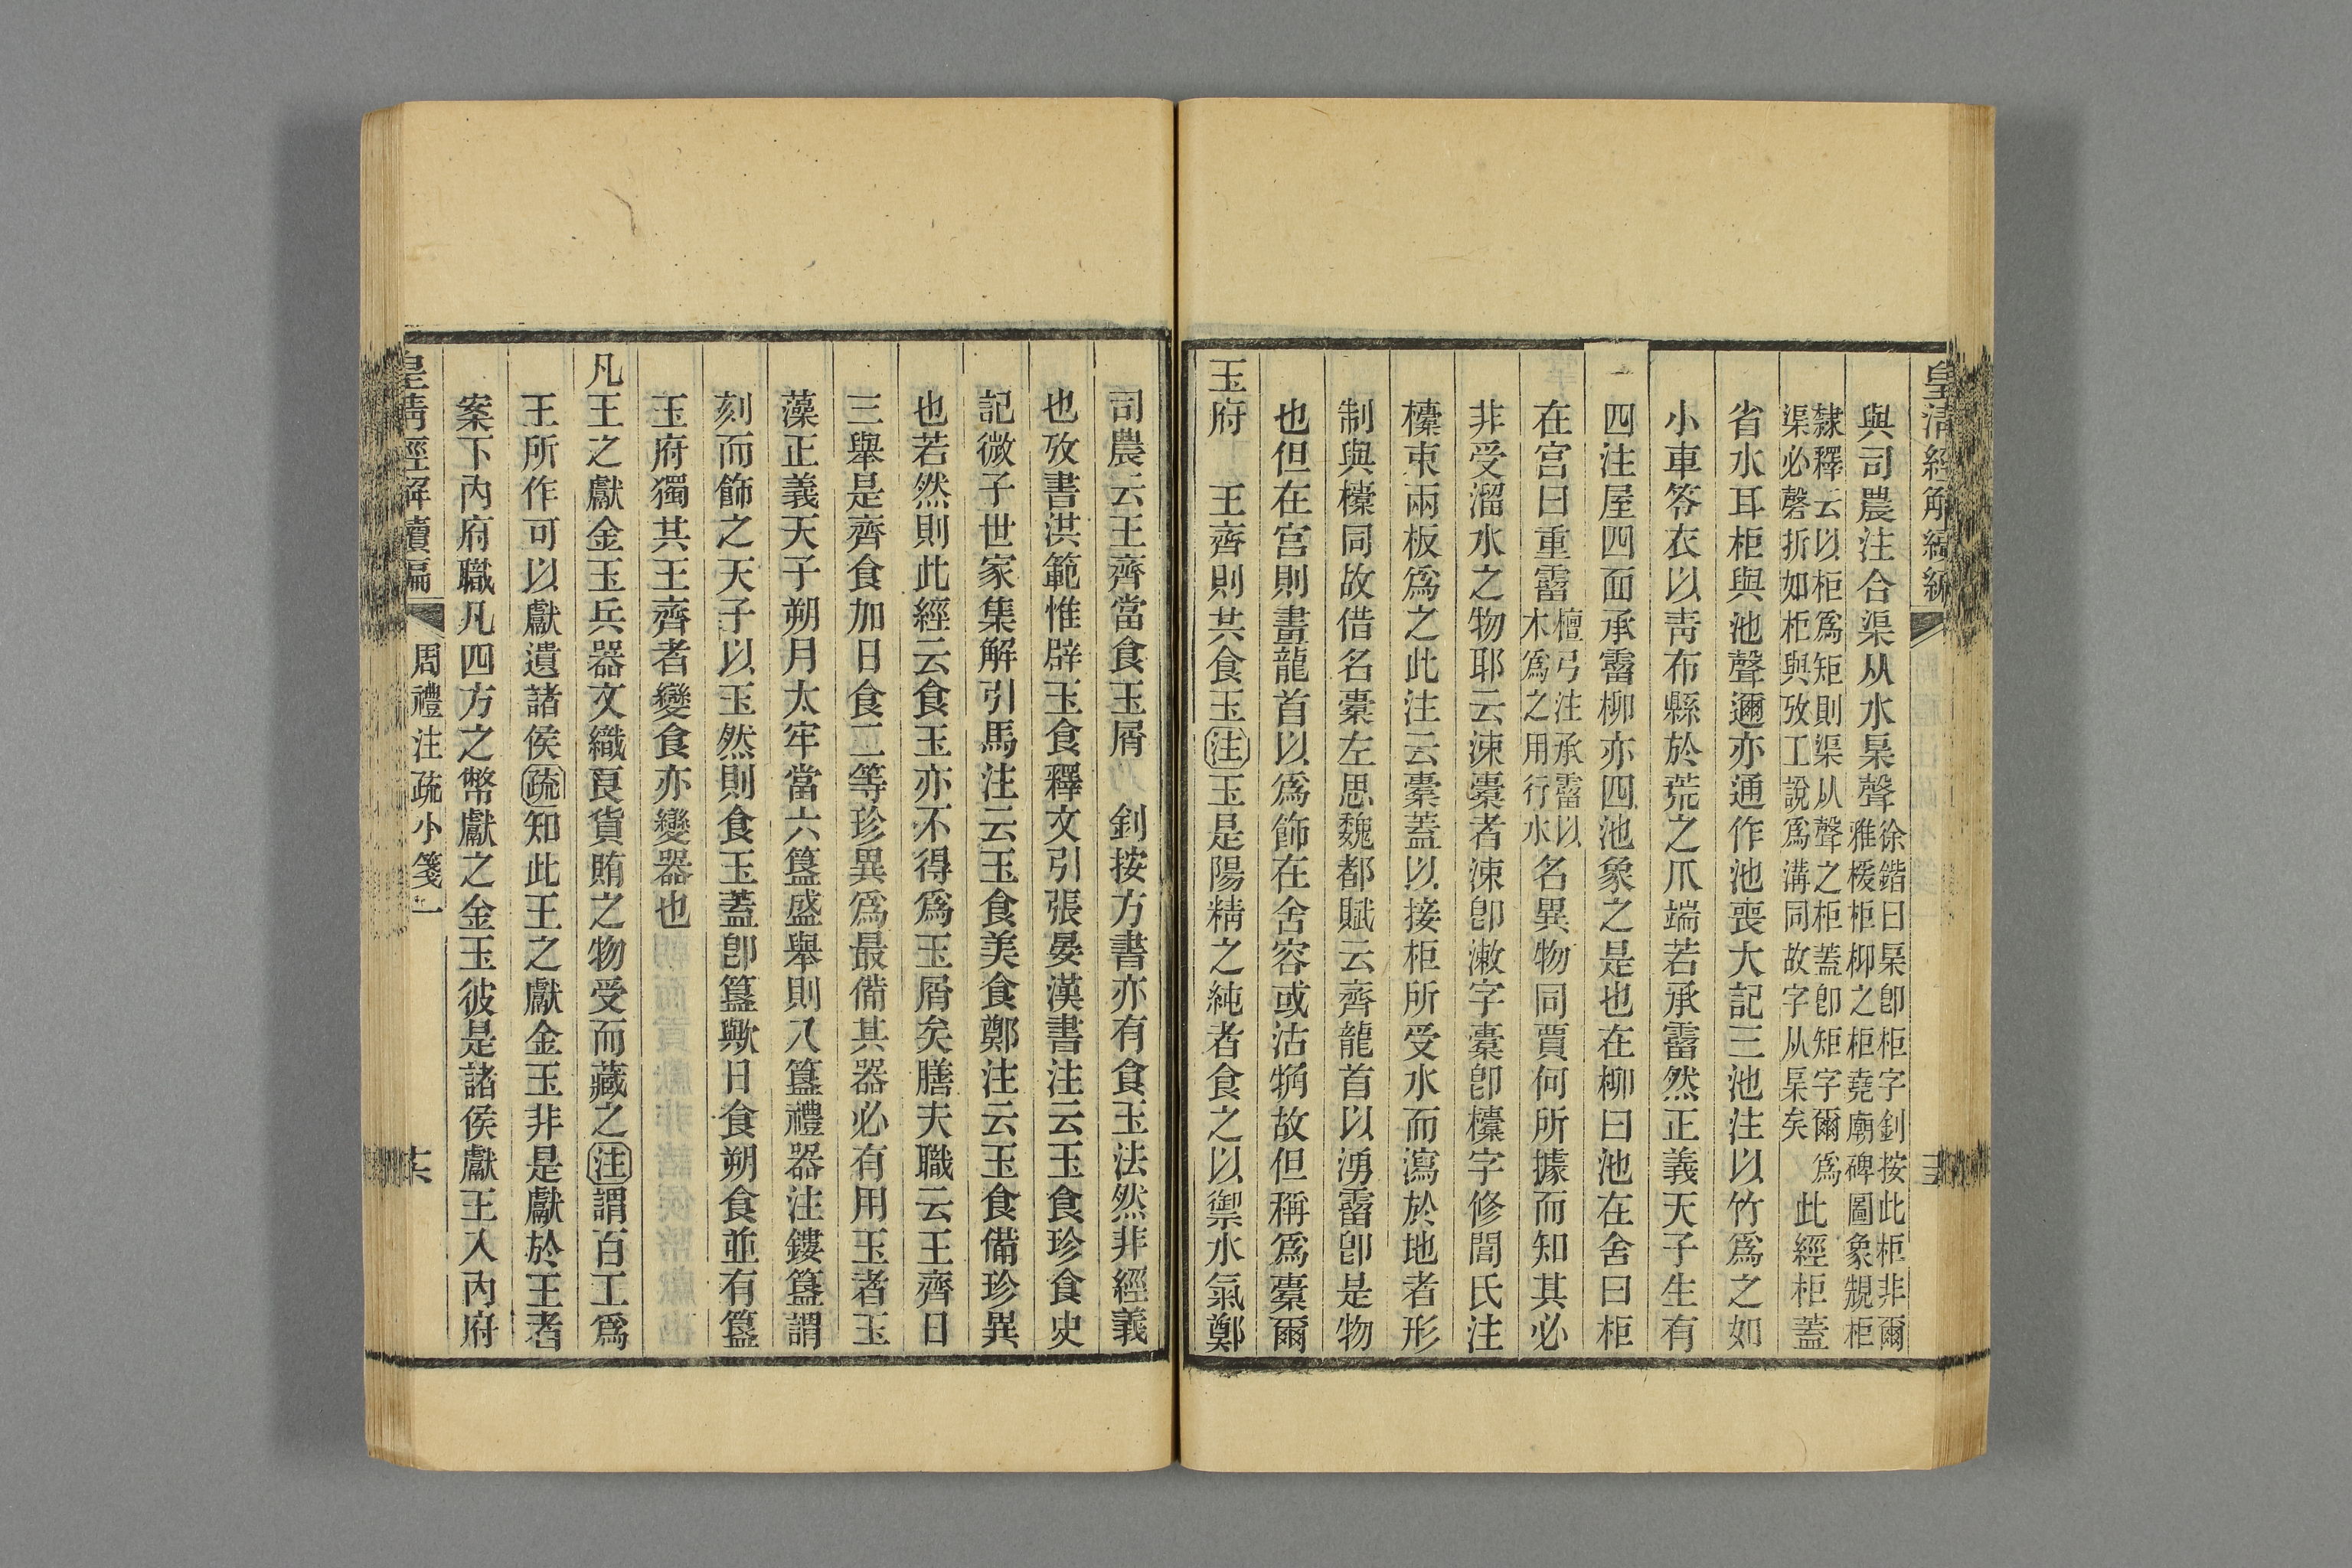 皇淸經解續編
與司農注合渠从水榘聲徐鍇曰榘卽柜字釗按此柜非爾
雅楥柜柳之柜堯廟碑圖象䂓柜
隸釋云以柜爲矩則渠从聲之柜蓋卽矩字爾爲
渠必磬折如柜與攷工說爲溝同故字从榘矣
此經柜蓋
省水耳柜與池聲邇亦通作池喪大記三池注以竹爲之如
小車笭衣以靑布縣於荒之爪端若承霤然正義天子生有
四注屋四面承霤柳亦四池象之是也在柳曰池在舍曰柜
在宮曰重霤檀弓注承霤以
木爲之用行水
名異物同賈何所據而知其必
非受溜水之物耶云涑橐者涑卽漱字橐卽㯱字修閭氏注
㯱束兩板爲之此注云橐蓋以接柜所受水而瀉於地者形
制與㯱同故借名橐左思魏都賦云齊龍首以湧霤卽是物
也但在宮則畫龍首以爲飾在舍容或沽觕故但稱爲橐爾
玉府 王齊則共食玉注玉是陽精之純者食之以禦水氣鄭
司農云王齊當食玉屑 釗按方書亦有食玉法然非經義
也攷書洪範惟辟玉食釋文引張晏漢書注云玉食珍食史
記微子世家集解引馬注云玉食美食鄭注云玉食備珍異
也若然則此經云食玉亦不得爲玉屑矣膳夫職云王齊日
三舉是齊食加日食二等珍異爲最備其器必有用玉者玉
藻正義天子朔月太牢當六簋盛舉則八簋禮器注鏤簋謂
刻而飾之天子以玉然則食玉蓋卽簋歟日食朔食並有簋
玉府獨共王齊者變食亦變器也
凡王之獻金玉兵器文織良貨賄之物受而藏之注謂百工爲
王所作可以獻遺諸侯疏知此王之獻金玉非是獻於王者
案下內府職凡四方之幣獻之金玉彼是諸侯獻王入內府
皇淸經解續編 周禮注疏小箋一